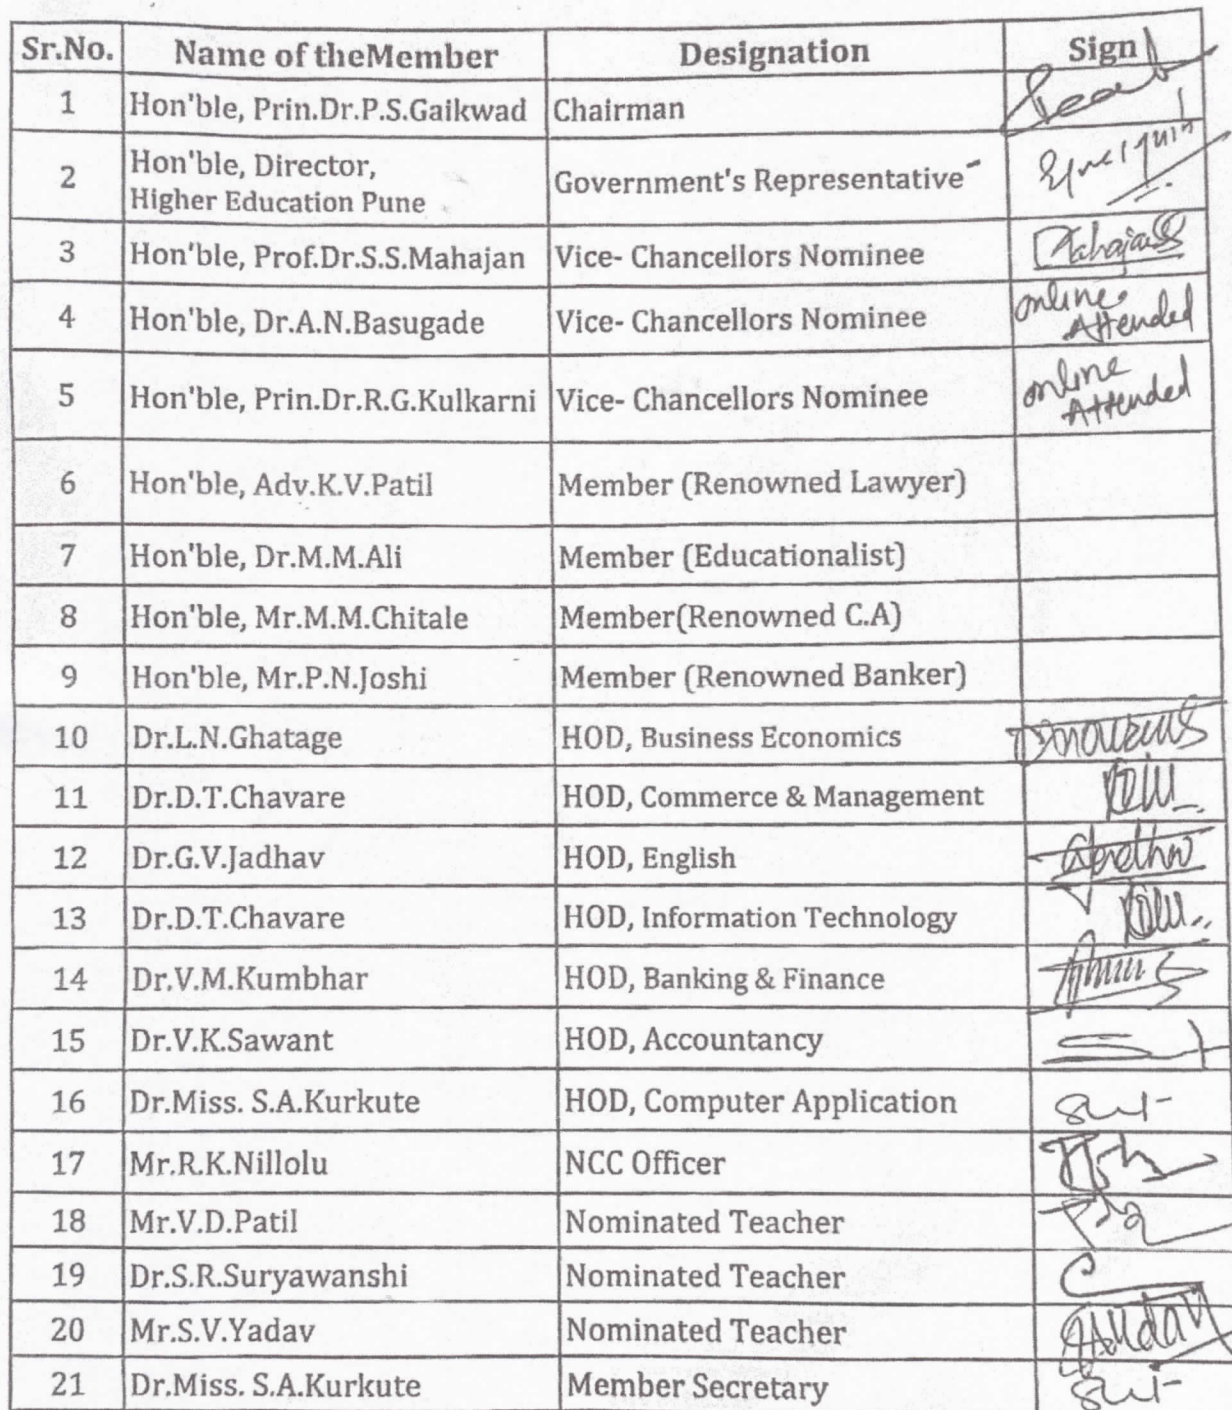 Sr.No. Name of theMember Designation Sign
1 Hon'ble, Prin.Dr.P.S.Gaikwad Chairman
2 Hon'ble, Director,
Higher Education Pune Government's Representative
3 Hon'ble, Prof.Dr.S.S.Mahajan Vice- Chancellors Nominee MahajanSS
4 Hon'ble, Dr.A.N.Basugade Vice- Chancellors Nominee online
Attended
5 Hon'ble, Prin.Dr.R.G.Kulkarni Vice- Chancellors Nominee online
Attended
6 Hon'ble, Adv.K.V.Patil Member (Renowned Lawyer)
7 Hon'ble, Dr.M.M.Ali Member (Educationalist)
8 Hon'ble, Mr.M.M.Chitale Member(Renowned C.A)
9 Hon'ble, Mr.P.N.Joshi Member (Renowned Banker)
10 Dr.L.N.Ghatage HOD, Business Economics
11 Dr.D.T.Chavare HOD, Commerce & Management
12 Dr.G.V.Jadhav HOD, English
13 Dr.D.T.Chavare HOD, Information Technology
14 Dr.V.M.Kumbhar HOD, Banking & Finance
15 Dr.V.K.Sawant HOD, Accountancy
16 Dr.Miss. S.A.Kurkute HOD, Computer Application
17 Mr.R.K.Nillolu NCC Officer
18 Mr.V.D.Patil Nominated Teacher
19 Dr.S.R.Suryawanshi Nominated Teacher
20 Mr.S.V.Yadav Nominated Teacher
21 Dr.Miss. S.A.Kurkute Member Secretary